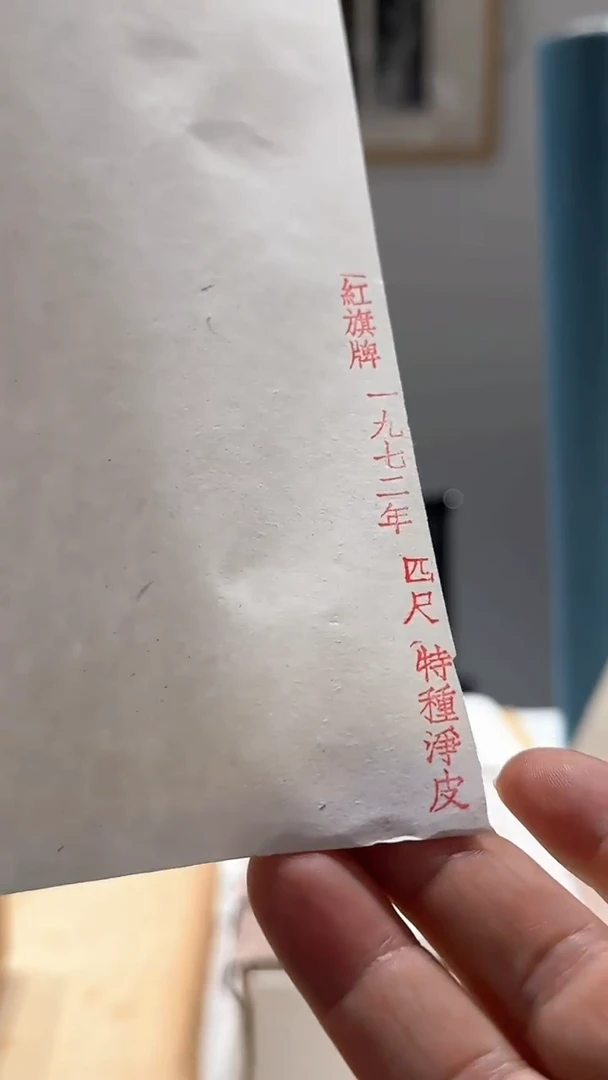 紅旗牌 一九七二年 四尺 特種淨皮